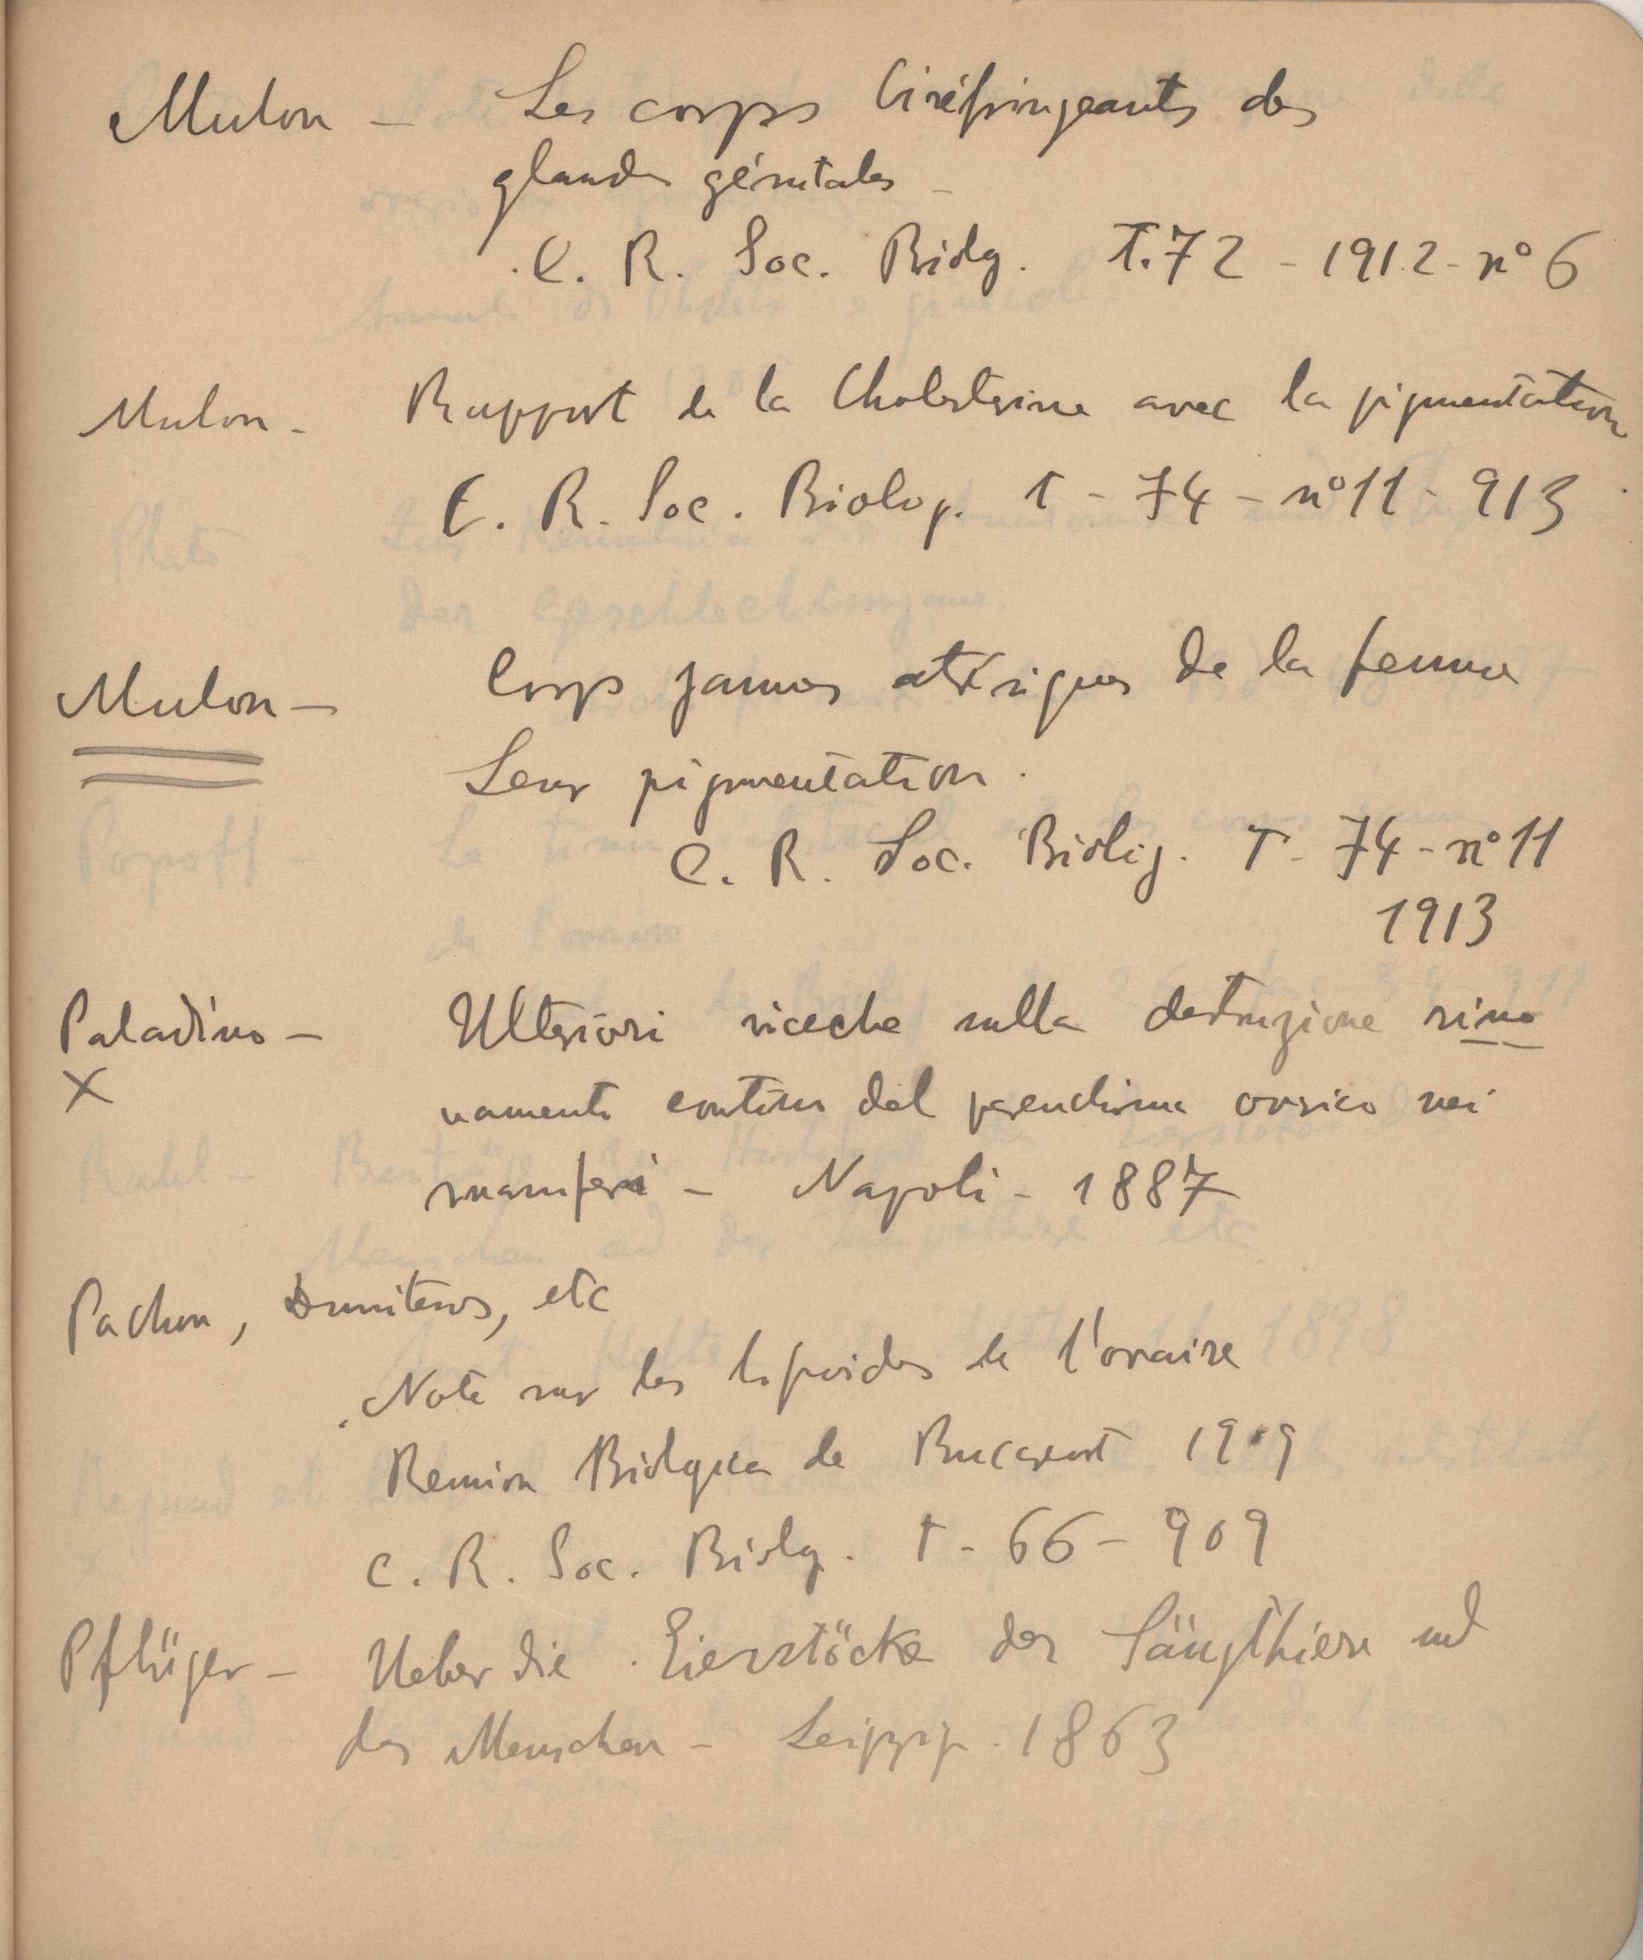 Mulon – Les corps biréfringeants des
glandes génitales –
C. R. Soc. Biolg. T. 72 – 1912 – nº 6
Mulon – Rapport de la Cholesterine avec la pigmentation
C. R. Soc. Biolog. T – 74 – nº 11 – 913
Mulon – Corps jaunes atrésiques de la femme
Leur pigmentation.
C. R. Soc. Biolig. T – 74 – nº 11
1913
Paladino – Ulteriori riceche sulla destruzione rino
X vamento continu del parenchima ovarico nei
mamiferi – Napoli – 1887
Pachon, etc
Note sur les lipoides de l'ovaire
Reunion Biolgica de Bucarest 1909
C. R. Soc. Biolg. T – 66 – 909
Pflüger – Ueber die Eierstöcke der Säugthiere und
des Menschen – Leipzig. 1863